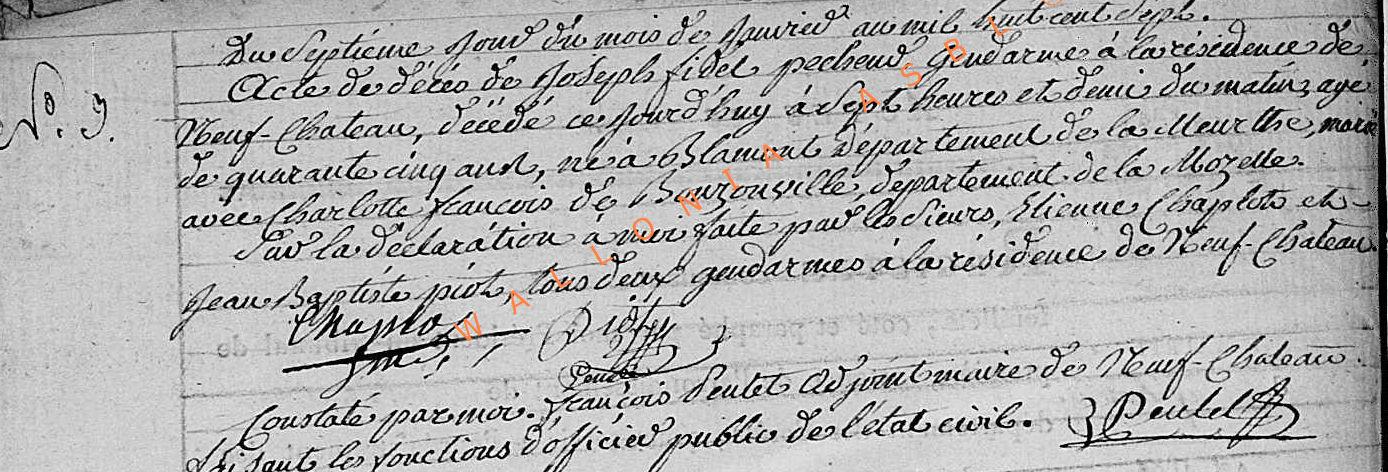 Du Septiéme Jour du mois de Janvier an mil huit cent Sept.
N.º 9. Acte de décés de Joseph fidel pecheur, Gendarme à la résidence de
Neuf-Chateau, décédé ce jourd'huy à Sept heures et demie du matin, agé
de quarante cinq ans, né à Blamont Département de la Meurthe, marié
avec Charlotte francois de Bouzonville, département de la Mozelle.
Sur la déclaration à moi faite par les Sieurs, Etienne Chaplot et
Jean Baptiste piot, tous deux gendarmes à la résidence de Neuf-Chateau
Constaté par moi. françois Pentet Adjoint maire de Neuf-Chateau.
faisant les fonctions d'officier public de l'état civil. Pentet
WALLONIA ASBL